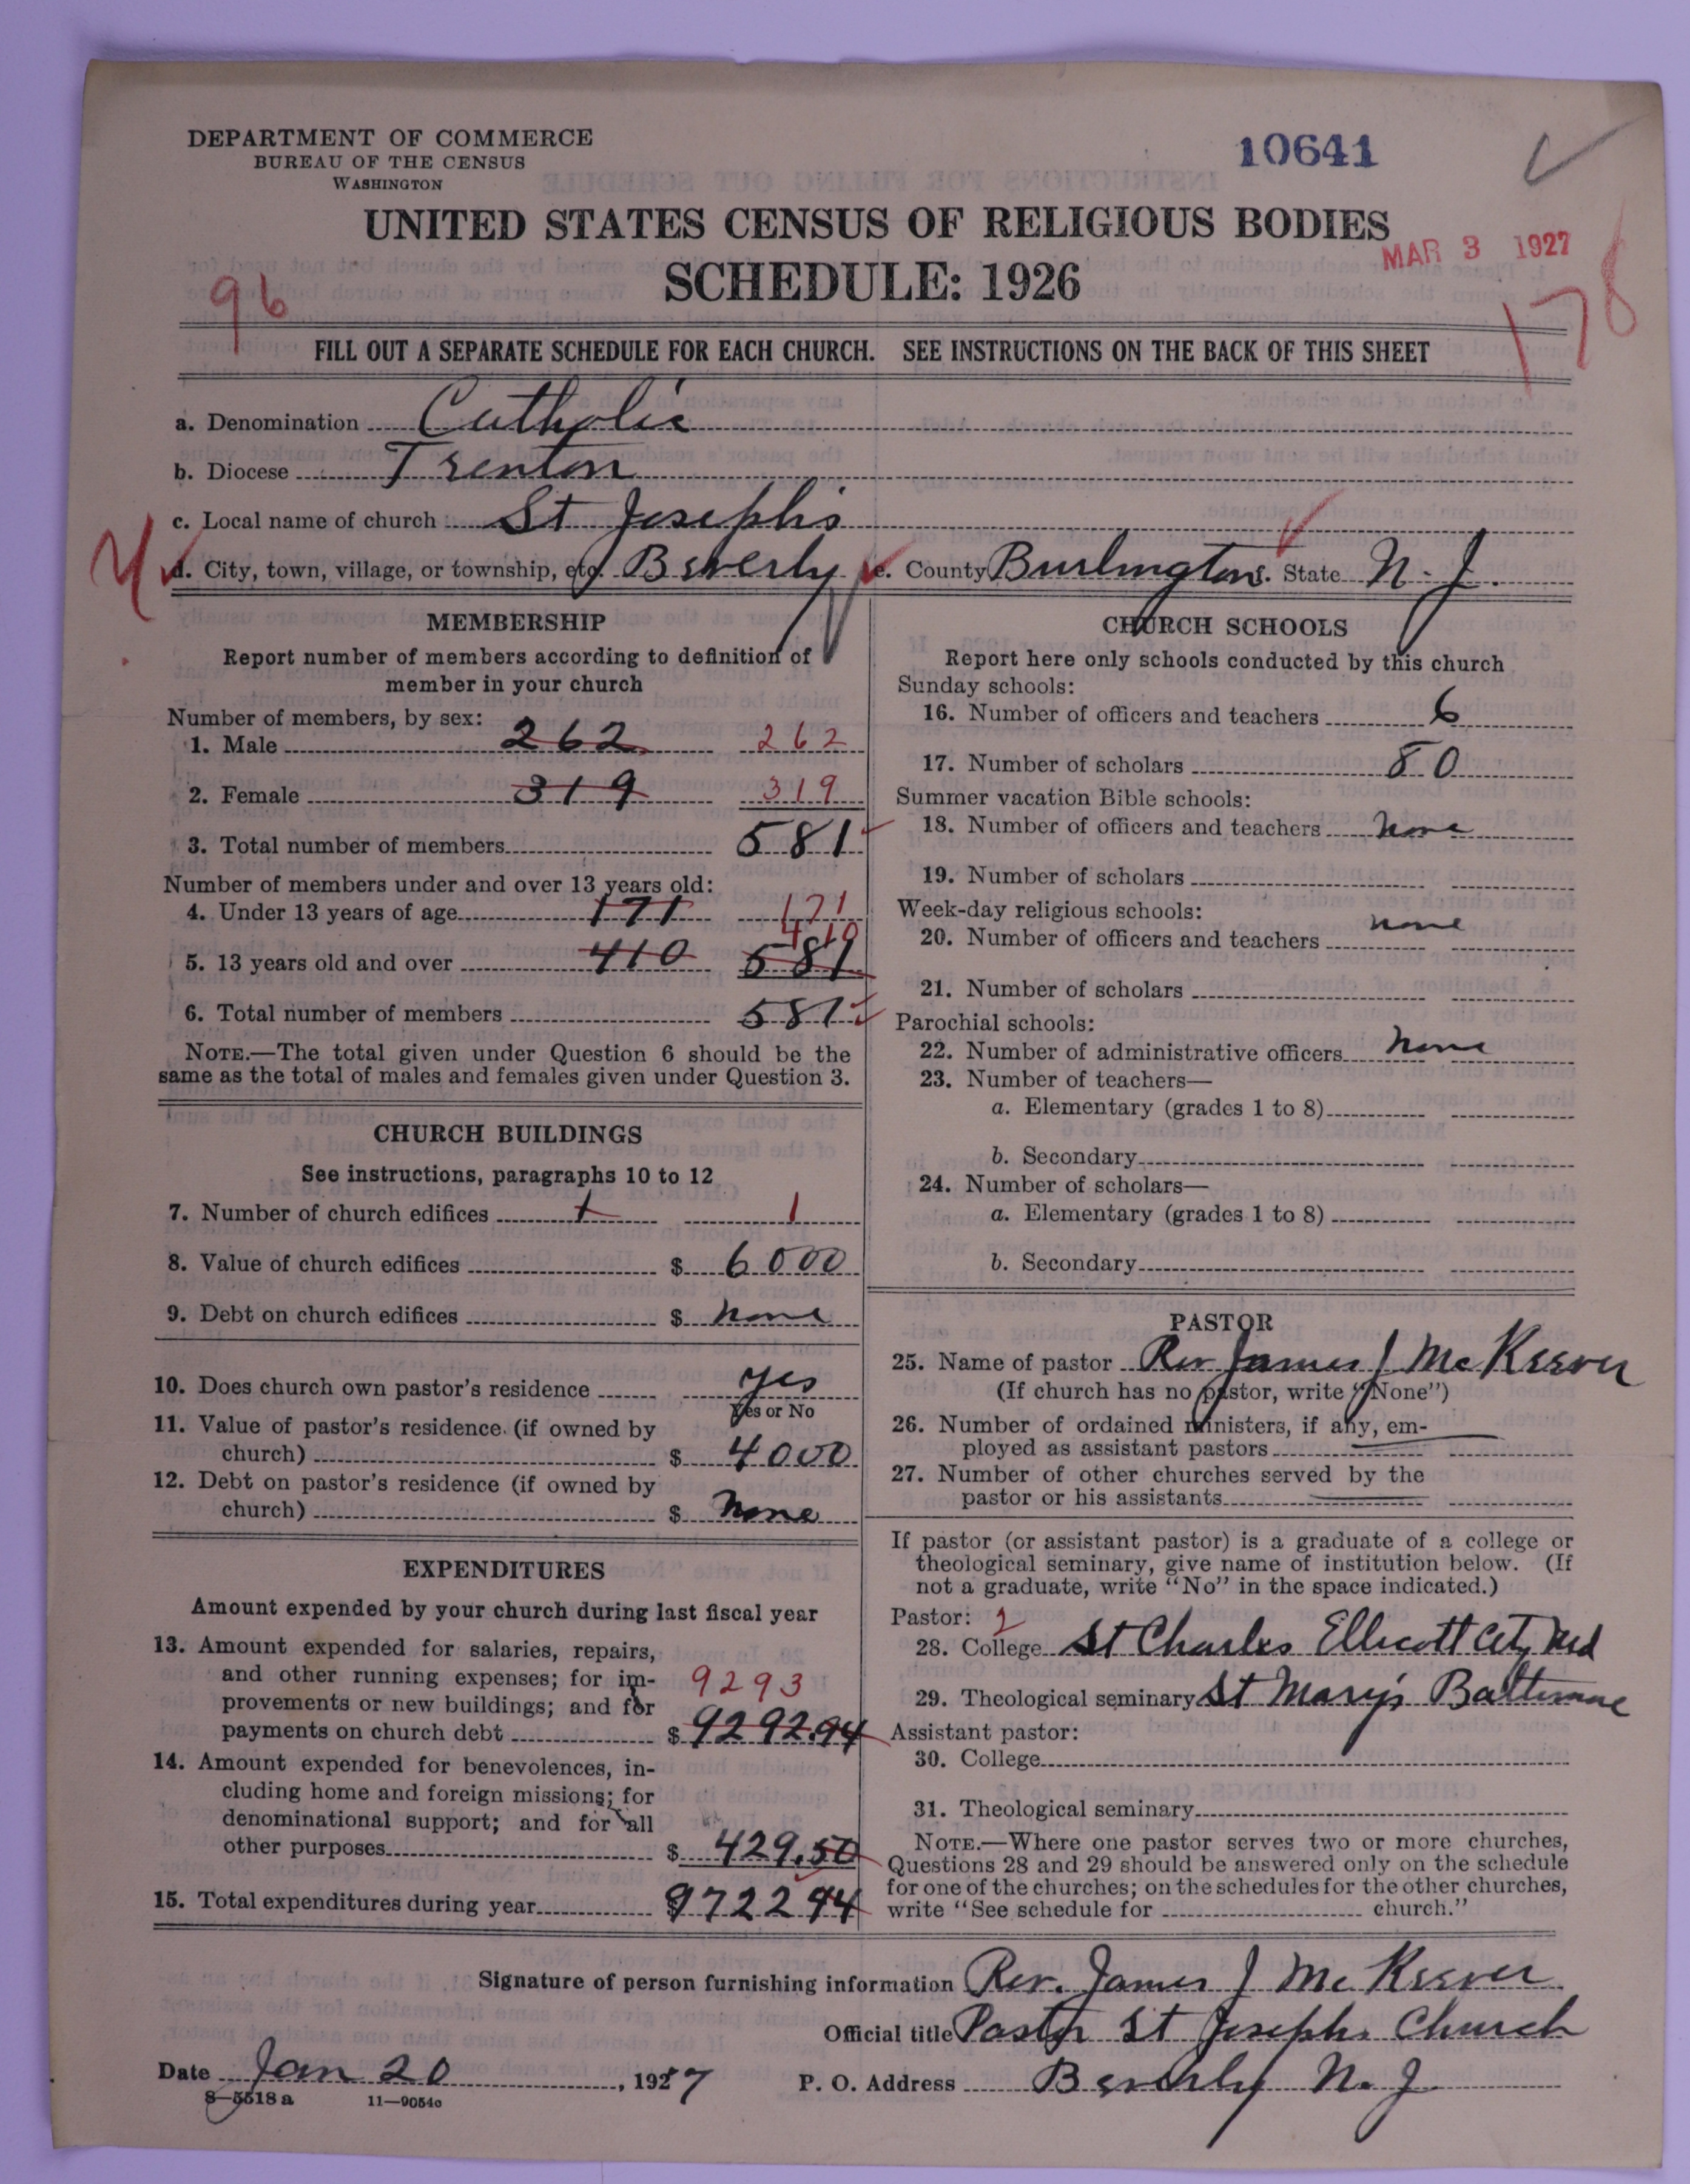 DEPARTMENT OF COMMERCE
BUREAU OF THE CENSUS
WASHINGTON
10641
UNITED STATES CENSUS OF RELIGIOUS BODIES
MAR 3 1927
SCHEDULE: 1926
96
178
FILL OUT A SEPARATE SCHEDULE FOR EACH CHURCH. SEE INSTRUCTIONS ON THE BACK OF THIS SHEET
a. Denomination Catholic
b. Diocese Trenton
c. Local name of church St Joseph's
d. City, town, village, or township, etc. Beverly e. County Burlington f. State N. J.
MEMBERSHIP
Report number of members according to definition of
member in your church
Number of members, by sex:
1. Male 262 262
2. Female 319 319
3. Total number of members 581
Number of members under and over 13 years old:
4. Under 13 years of age 171 171
410
5. 13 years old and over 410 581
6. Total number of members 581
NOTE.—The total given under Question 6 should be the
same as the total of males and females given under Question 3.
CHURCH BUILDINGS
See instructions, paragraphs 10 to 12
7. Number of church edifices 1 1
8. Value of church edifices $ 6000
9. Debt on church edifices $ none
10. Does church own pastor's residence yes
Yes or No
11. Value of pastor's residence (if owned by
church) $ 4000
12. Debt on pastor's residence (if owned by
church) $ None
EXPENDITURES
Amount expended by your church during last fiscal year
13. Amount expended for salaries, repairs,
and other running expenses; for im- 9293
provements or new buildings; and for
payments on church debt $ 9292.94
14. Amount expended for benevolences, in-
cluding home and foreign missions; for
denominational support; and for all
other purposes $ 429.50
15. Total expenditures during year $ 9722 94
CHURCH SCHOOLS
Report here only schools conducted by this church
Sunday schools:
16. Number of officers and teachers 6
17. Number of scholars 80
Summer vacation Bible schools:
18. Number of officers and teachers none
19. Number of scholars
Week-day religious schools:
20. Number of officers and teachers none
21. Number of scholars
Parochial schools:
22. Number of administrative officers None
23. Number of teachers—
a. Elementary (grades 1 to 8)
b. Secondary
24. Number of scholars—
a. Elementary (grades 1 to 8)
b. Secondary
PASTOR
25. Name of pastor Rev James J McKeever
(If church has no pastor, write "None")
26. Number of ordained ministers, if any, em-
ployed as assistant pastors
27. Number of other churches served by the
pastor or his assistants
If pastor (or assistant pastor) is a graduate of a college or
theological seminary, give name of institution below. (If
not a graduate, write "No" in the space indicated.)
Pastor: 2
28. College St Charles Ellicott City Md
29. Theological seminary St Mary's Baltimore
Assistant pastor:
30. College
31. Theological seminary
NOTE.—Where one pastor serves two or more churches,
Questions 28 and 29 should be answered only on the schedule
for one of the churches; on the schedules for the other churches,
write "See schedule for church."
Signature of person furnishing information Rev. James J McKeever
Official title Pastor St Josephs Church
Date Jan 20, 1927 P. O. Address Beverly N. J.
8—5518 a 11—9054c